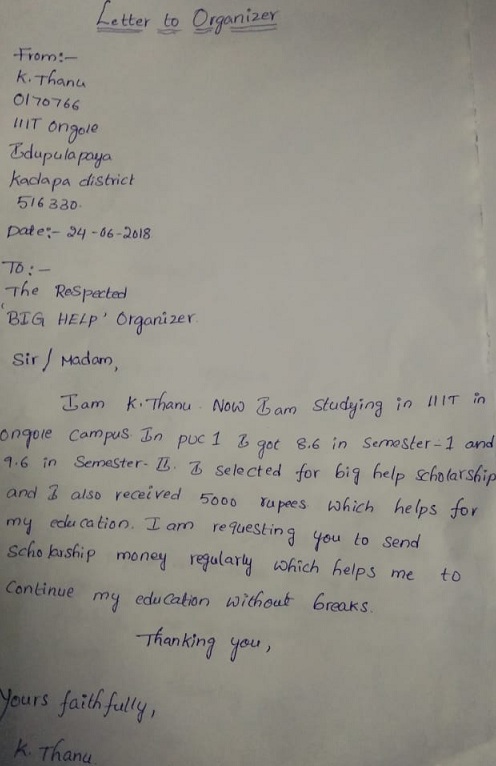 Letter to Organizer
From:-
K. Thanu
O170766
IIIT Ongole
Idupulapaya
Kadapa district
516330.
Date:- 24-06-2018
To:-
The Respected
'BIG HELP' Organizer
Sir / Madam,
I am K. Thanu. Now I am studying in IIIT in
ongole campus. In puc 1 I got 8.6 in Semester-1 and
9.6 in Semester-II. I selected for big help scholarship
and I also received 5000 rupees which helps for
my education. I am requesting you to send
Scholarship money regularly which helps me to
Continue my education without breaks.
Thanking you,
Yours faithfully,
K. Thanu